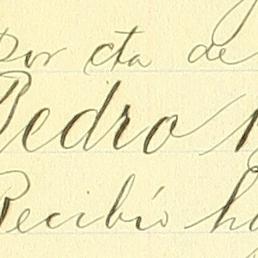 por cta de
Pedro
Recibío